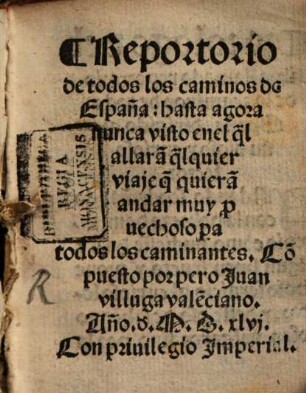 ¶ Reportorio
de todos los caminos de
España: hasta agora
nunca visto enel q̃l
allarã q̃lquier
viaje q̃ quierã
andar muy p
uechoso pa
todos los caminantes. Cõ
puesto por pero Juan
villuga valẽciano.
Año. d. M. D. xlvj.
Con priuilegio Imperial.
BIBLIOTHECA
REGIA
MONACENSIS
R